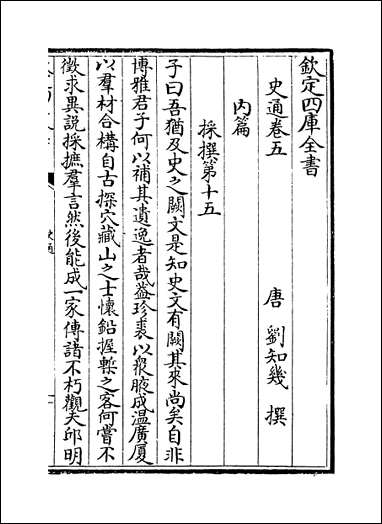 欽定四庫全書
史通卷五
唐 劉知幾 撰
內篇
採撰第十五
子曰吾猶及史之闕文是知史文有闕其來尚矣自非
博雅君子何以補其遺逸者哉葢珍裘以衆腋成温廣厦
以羣材合構自古探穴藏山之士懷鉛握槧之客何嘗不
徵求異說採摭羣言然後能成一家傳諸不朽觀夫邱明